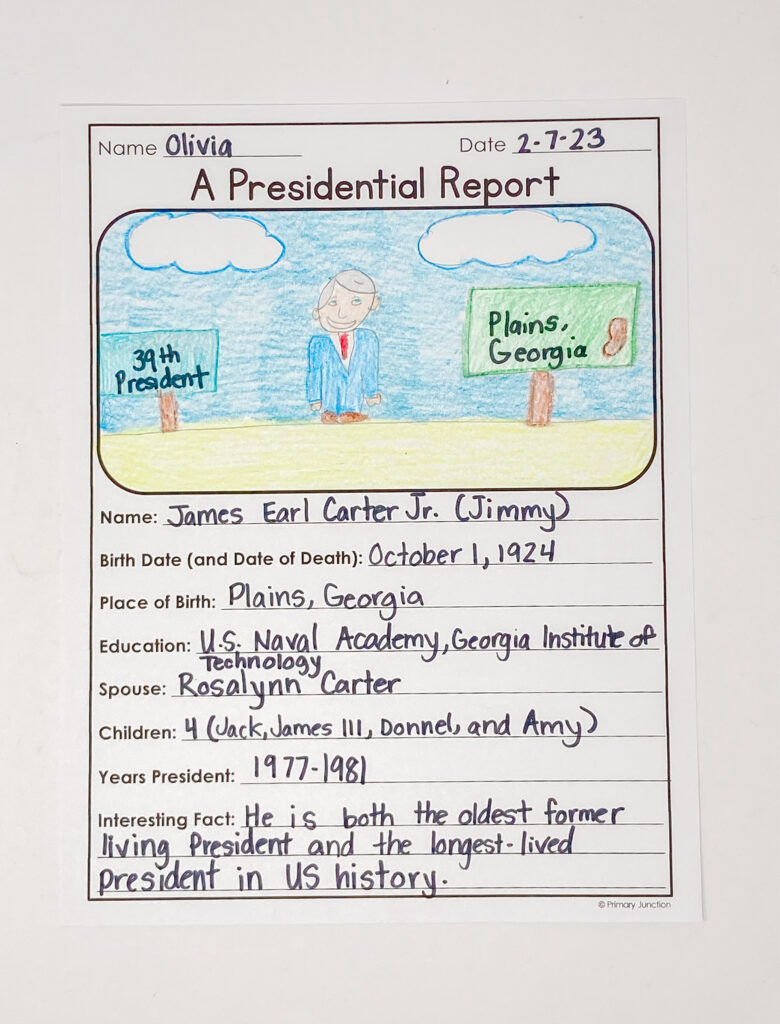 Name Olivia Date 2-7-23
A Presidential Report
39th
President
Plains,
Georgia
Name: James Earl Carter Jr. (Jimmy)
Birth Date (and Date of Death): October 1, 1924
Place of Birth: Plains, Georgia
Education: U.S. Naval Academy, Georgia Institute of
Technology
Spouse: Rosalynn Carter
Children: 4 (Jack, James III, Donnel, and Amy)
Years President: 1977-1981
Interesting Fact: He is both the oldest former
living President and the longest-lived
President in US history.
© Primary Junction